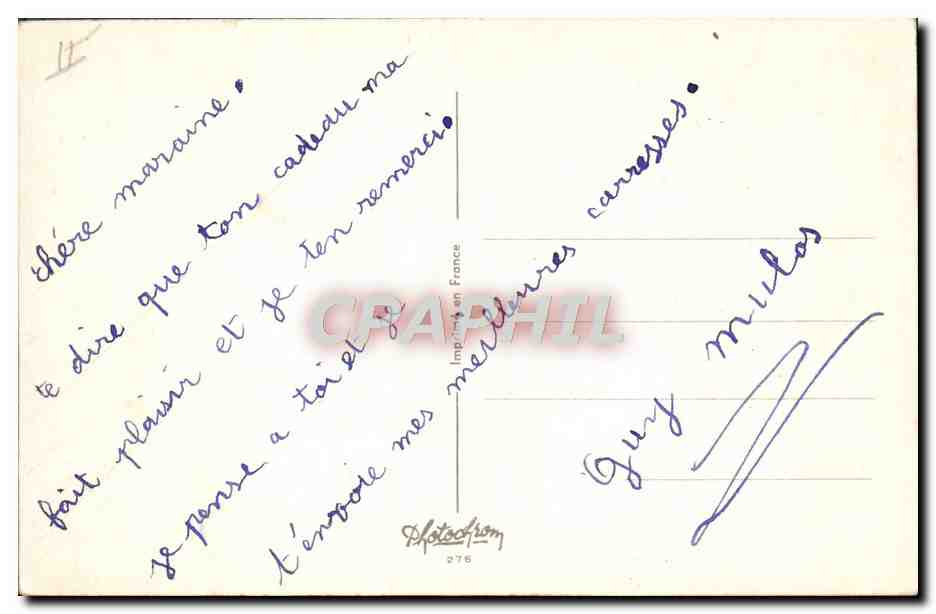 II
chère maraine.
te dire que ton cadeau ma
fait plaisir et je ten remerci.
je pense a toi et je
t'envoie mes meilleures carresses.
Guy Millas
Imprimé en France
CPAPHIL
Photochrom
276